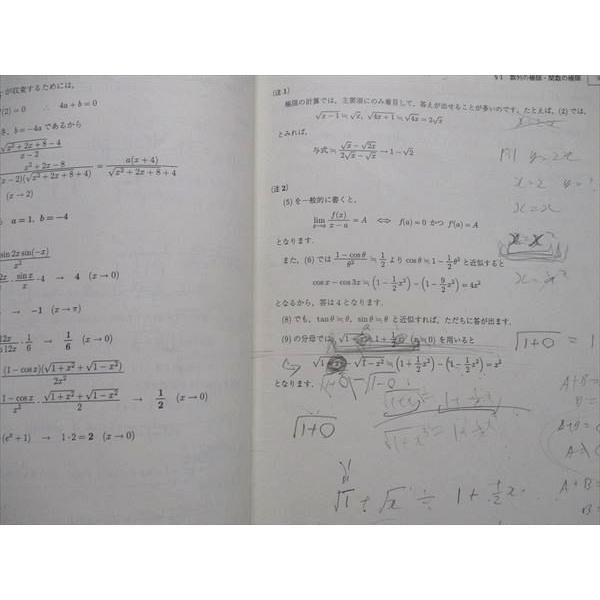 が収束するためには,
(2)=0 ∴ 4a+b=0
き, b=-4a であるから
√x²+2x+8-4
x-2
x²+2x-8
x-2)(√x²+2x+8+4)
= a(x+4)
√x²+2x+8+4
(x→2)
a=1, b=-4
sin2x sin(-x)
x²
2x · sinx/x · -4 → 4 (x→0)
→ -1 (x→π)
12x/12x · 1/6 → 1/6 (x→0)
(1-cosx)(√1+x²+√1-x²)
2x²
1-cosx/x² · √1+x²+√1-x²/2 → 1/2 (x→0)
(eˣ+1) → 1·2=2 (x→0)
§1 数列の極限・関数の極限
(注1)
極限の計算では, 主要項にのみ着目して, 答えが出せることが多いのです. たとえば, (2)では,
√x-1≒√x, √4x+1≒√4x=2√x
とみれば,
与式≒ √x-√2x/2√x-√x → 1-√2
(注2)
(5)を一般的に書くと,
lim x→a f(x)/x-a = A ⇔ f(a)=0 かつ f'(a)=A
となります.
また, (6)では 1-cosθ/θ² ≒ 1/2 より cosθ≒1-1/2θ² と近似すると
cosx-cos3x≒(1-1/2x²)-(1-9/2x²)=4x²
となるから, 答は4となります.
(8)でも, tanθ≒θ, sinθ≒θ と近似すれば, ただちに答が出ます.
(9)の分母では, √1+x≒1+1/2x (x≒0) を用いると
√1+x²-√1-x²≒(1+1/2x²)-(1-1/2x²)=x²
となります.
y=2x
x=2 y=?
x=x
√1+0 = 1
√1+0
√1+x² = 1+1/2x²
√1+√x ÷ 1+1/2x
A+B=